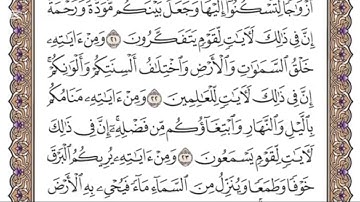 أَزْوَٰجًا لِّتَسْكُنُوٓا۟ إِلَيْهَا وَجَعَلَ بَيْنَكُم مَّوَدَّةً وَرَحْمَةً
إِنَّ فِى ذَٰلِكَ لَءَايَٰتٍ لِّقَوْمٍ يَتَفَكَّرُونَ ٢١ وَمِنْ ءَايَٰتِهِۦ
خَلْقُ ٱلسَّمَٰوَٰتِ وَٱلْأَرْضِ وَٱخْتِلَٰفُ أَلْسِنَتِكُمْ وَأَلْوَٰنِكُمْ
إِنَّ فِى ذَٰلِكَ لَءَايَٰتٍ لِّلْعَٰلِمِينَ ٢٢ وَمِنْ ءَايَٰتِهِۦ مَنَامُكُم
بِٱلَّيْلِ وَٱلنَّهَارِ وَٱبْتِغَآؤُكُم مِّن فَضْلِهِۦٓ إِنَّ فِى ذَٰلِكَ
لَءَايَٰتٍ لِّقَوْمٍ يَسْمَعُونَ ٢٣ وَمِنْ ءَايَٰتِهِۦ يُرِيكُمُ ٱلْبَرْقَ
خَوْفًا وَطَمَعًا وَيُنَزِّلُ مِنَ ٱلسَّمَآءِ مَآءً فَيُحْىِۦ بِهِ ٱلْأَرْضَ